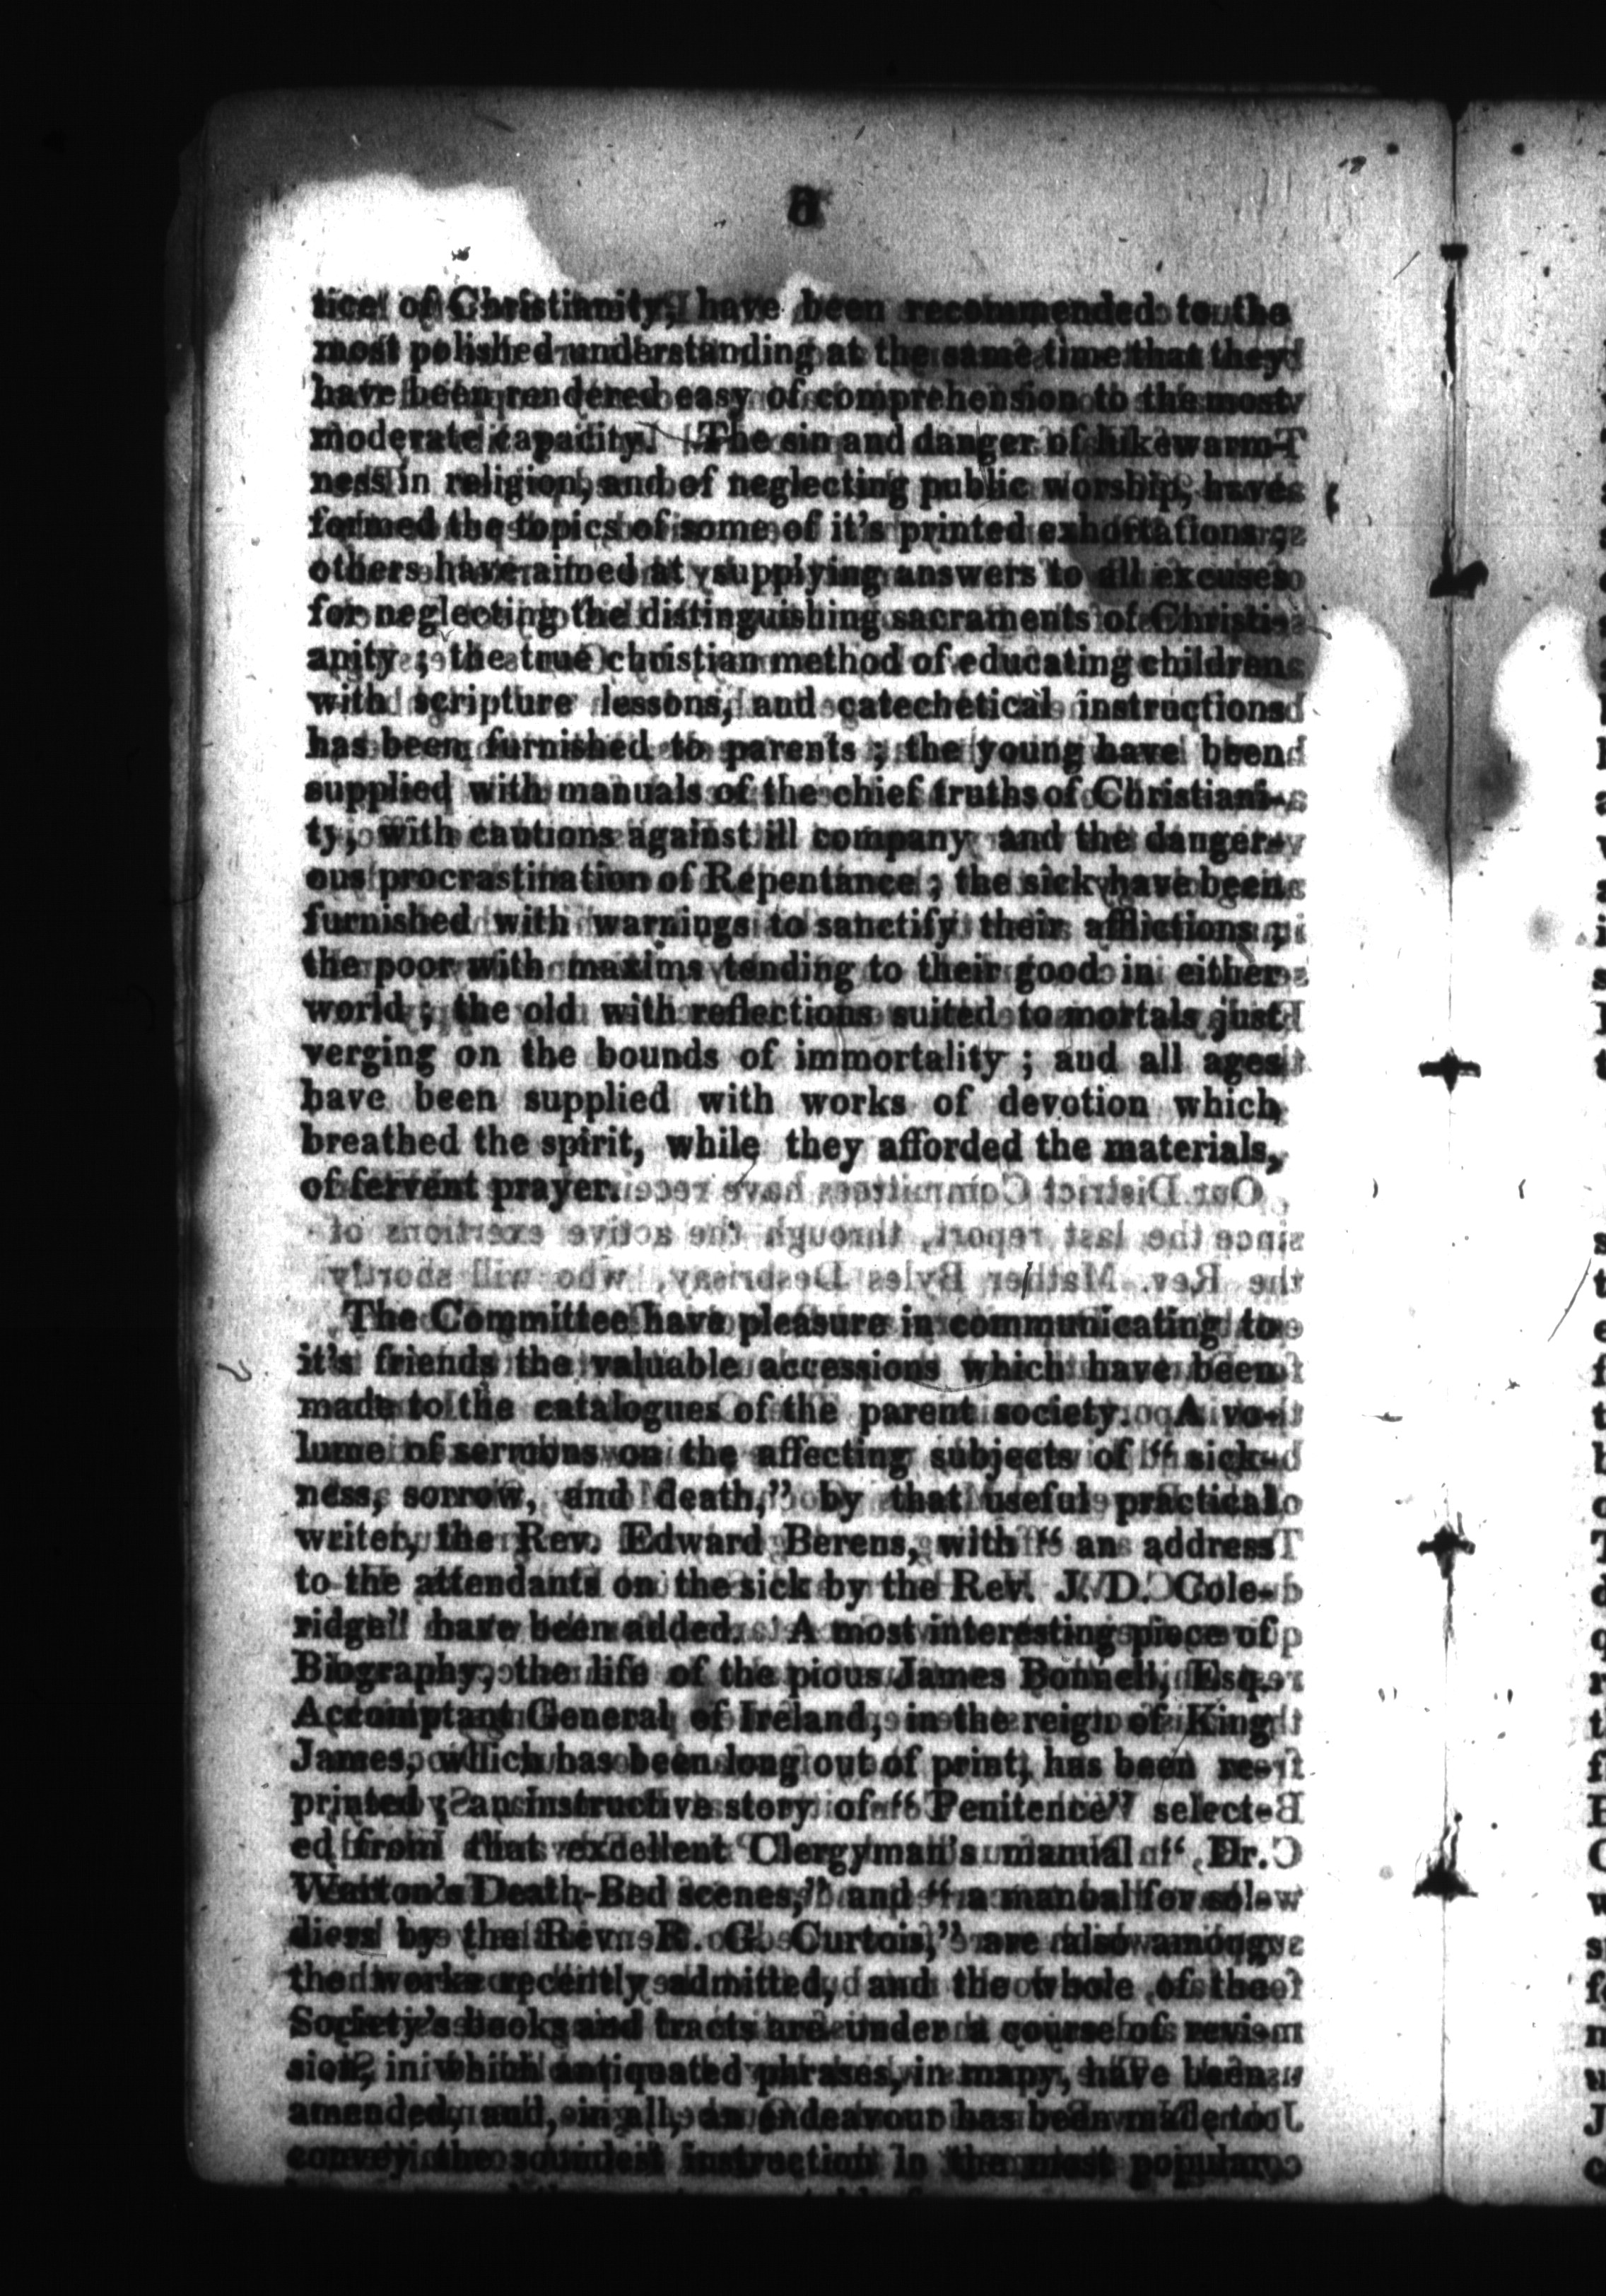 6
tice of Christianity, have been recommended to the
most polished understanding at the same time that they
have been rendered easy of comprehension to the most
moderate capacity. The sin and danger of lukewarm-
ness in religion, and of neglecting public worship, have
formed the topics of some of it's printed exhortations;
others have aimed at supplying answers to all excuses
for neglecting the distinguishing sacraments of Christi-
anity; the true christian method of educating children
with scripture lessons, and catechetical instructions
has been furnished to parents; the young have been
supplied with manuals of the chief truths of Christiani-
ty, with cautions against ill company and the danger-
ous procrastination of Repentance; the sick have been
furnished with warnings to sanctify their afflictions;
the poor with maxims tending to their good in either
world; the old with reflections suited to mortals just
verging on the bounds of immortality; and all ages
have been supplied with works of devotion which
breathed the spirit, while they afforded the materials,
of fervent prayer.
The Committee have pleasure in communicating to
it's friends the valuable accessions which have been
made to the catalogues of the parent society. A vo-
lume of sermons on the affecting subjects of "sick-
ness, sorrow, and death," by that useful practical
writer, the Rev. Edward Berens, with "an address
to the attendants on the sick by the Rev. J. D. Cole-
ridge" have been added. A most interesting piece of
Biography, the life of the pious James Bonnell, Esq.
Accomptant General of Ireland, in the reign of King
James, which has been long out of print, has been re-
printed; an instructive story of "Penitence" select-
ed from that excellent Clergyman's manual "Dr.
Warton's Death-Bed scenes," and "a manual for sol-
diers by the Rev. R. G. Curtois," are also among
the works recently admitted, and the whole of the
Society's books and tracts are under a course of revi-
sion, in which antiquated phrases, in many, have been
amended, and, in all, an endeavour has been made to
convey the soundest instruction in the most popular